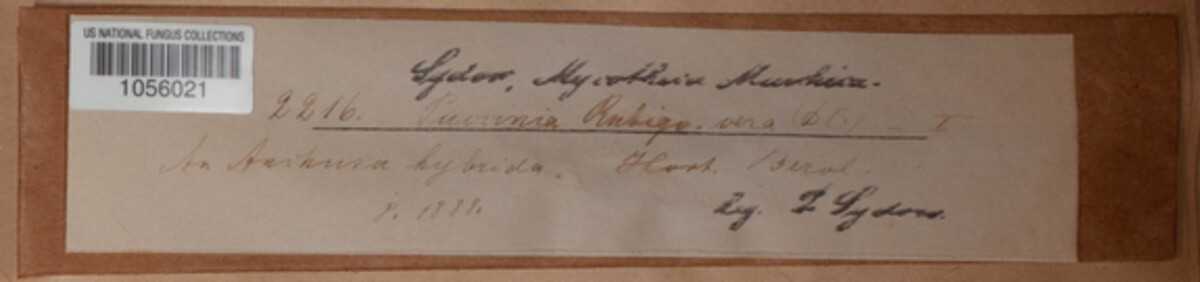 US NATIONAL FUNGUS COLLECTIONS
1056021
Sydow, Mycotheca Marchica.
2216. Puccinia Rubigo. vera (DC.) — I
An Anchusa hybrida. Hort. Berol.
8. 1888.
Leg. P Sydow.